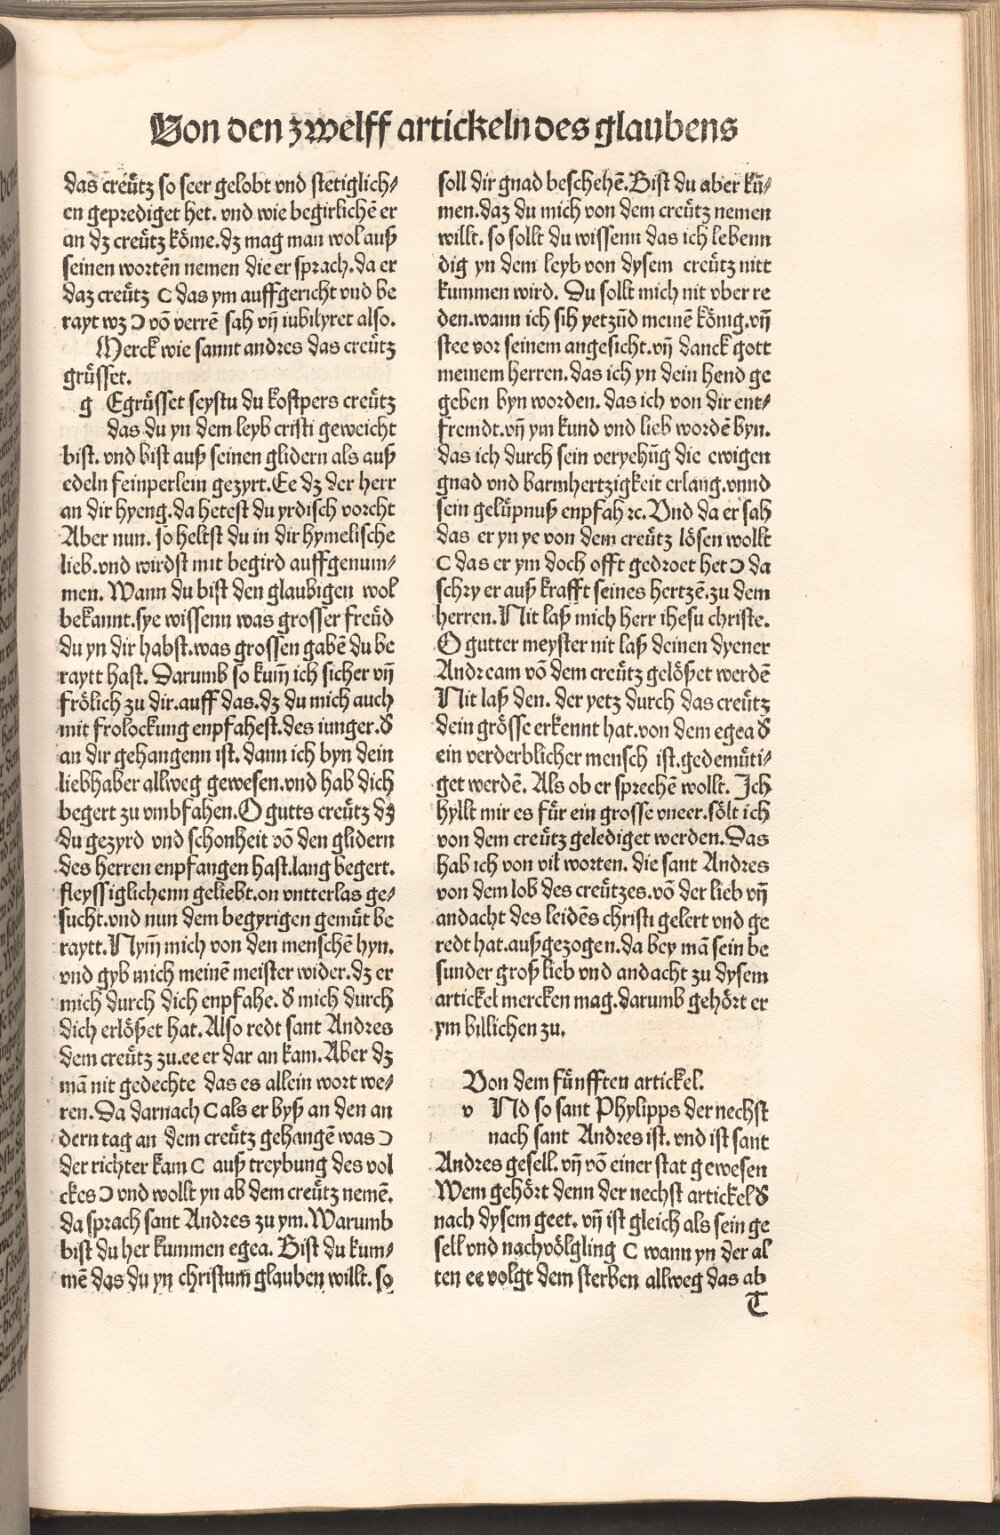 Von den zwelff artickeln des glaubens
das creütz so seer gelobt vnd stetiglich⸗
en geprediget het. vnd wie begirlichē er
an dz creütz kōme.dz mag man wol auß
seinen wortēn nemen die er sprach.da er
daz creütz C das ym auffgericht vnd be
rayt wz Ɔ vō verrē sah vn̄ iubilyret also.
Merck wie sannt andres das creütz
grüsset.
g Egrüsset seystu du kostpers creütz
das du yn dem leyb cristi geweicht
bist. vnd bist auß seinen glidern als auß
edeln feinperlein gezyrt.Ee dz der herr
an dir hyeng.da hetest du yrdisch vorcht
Aber nun. so heltst du in dir hymelische
lieb.vnd wirdst mit begird auffgenum⸗
men. Wann du bist den glaubigen wol
bekannt.sye wissenn was grosser freüd
du yn dir habst.was grossen gabē du be
raytt hast. Darumb so kum̄ ich sicher vn̄
frölich zu dir.auff das.dz du mich auch
mit frolockung enpfahest.des iunger.d̕
an dir gehangenn ist. dann ich byn dein
liebhaber allweg gewesen.vnd hab dich
begert zu vmbfahen.O gutts creütz dz
du gezyrd vnd schonheit vō den glidern
des herren enpfangen hast.lang begert.
fleyssiglichenn geliebt.on vntterlas ge⸗
sucht.vnd nun dem begyrigen gemüt be
raytt.Nym̄ mich von den menschē hyn.
vnd gyb mich meinē meister wider.dz er
mich durch dich enpfahe. d̕ mich durch
dich erlößet hat.Also redt sant Andres
dem creütz zu.ee er dar an kam.Aber dz
mā nit gedechte das es allein wort we⸗
ren.Da darnach C als er byß an den an
dern tag an dem creütz gehangē was Ɔ
der richter kam C auß treybung des vol
ckes Ɔ vnd wollt yn ab dem creütz nemē.
da sprach sant Andres zu ym.Warumb
bist du her kummen egea. Bist du kum⸗
mē das du yn christum glauben willt. so
soll dir gnad beschehē.Bist du aber kū⸗
men.daz du mich von dem creütz nemen
willt. so sollt du wissenn das ich lebenn
dig yn dem leyb von dysem creütz nitt
kummen wird. Du sollt mich nit vber re
den.wann ich sih yetzūd meinē könig.vn̄
stee vor seinem angesicht.vn̄ danck gott
meinem herren.das ich yn dein hend ge
geben byn worden. das ich von dir ent⸗
fremdt.vn̄ ym kund vnd lieb wordē byn.
das ich durch sein veryehūg die ewigen
gnad vnd barmhertzigkeit erlang.vnnd
sein gelüpnuß enpfah ꝛc.Vnd da er sah
das er yn ye von dem creütz lösen wollt
C das er ym doch offt gedroet het Ɔ da
schry er auß krafft seines hertzē.zu dem
herren.Nit laß mich herr ihesu christe.
O gutter meyster nit laß deinen dyener
Andream vō dem creütz gelößet werdē
Nit laß den. der yetz durch das creütz
dein grösse erkennt hat.von dem egea d̕
ein verderblicher mensch ist.gedemüti⸗
get werdē. Als ob er sprechē wollt. Ich
hyllt mir es für ein grosse vneer.sölt ich
von dem creütz gelediget werden.Das
hab ich von vil worten. die sant Andres
von dem lob des creützes.vō der lieb vn̄
andacht des leidēs christi gelert vnd ge
redt hat.außgezogen.da bey mā sein be
sunder groß lieb vnd andacht zu dysem
artickel mercken mag.darumb gehört er
ym billichen zu.
Von dem fünfften artickel.
v Nd so sant Phylipps der nechst
nach sant Andres ist. vnd ist sant
Andres gesell. vn̄ vō einer stat gewesen
Wem gehört denn der nechst artickel d̕
nach dysem geet. vn̄ ist gleich als sein ge
sell vnd nachvölgling C wann yn der al
ten ee volgt dem sterben allweg das ab
T